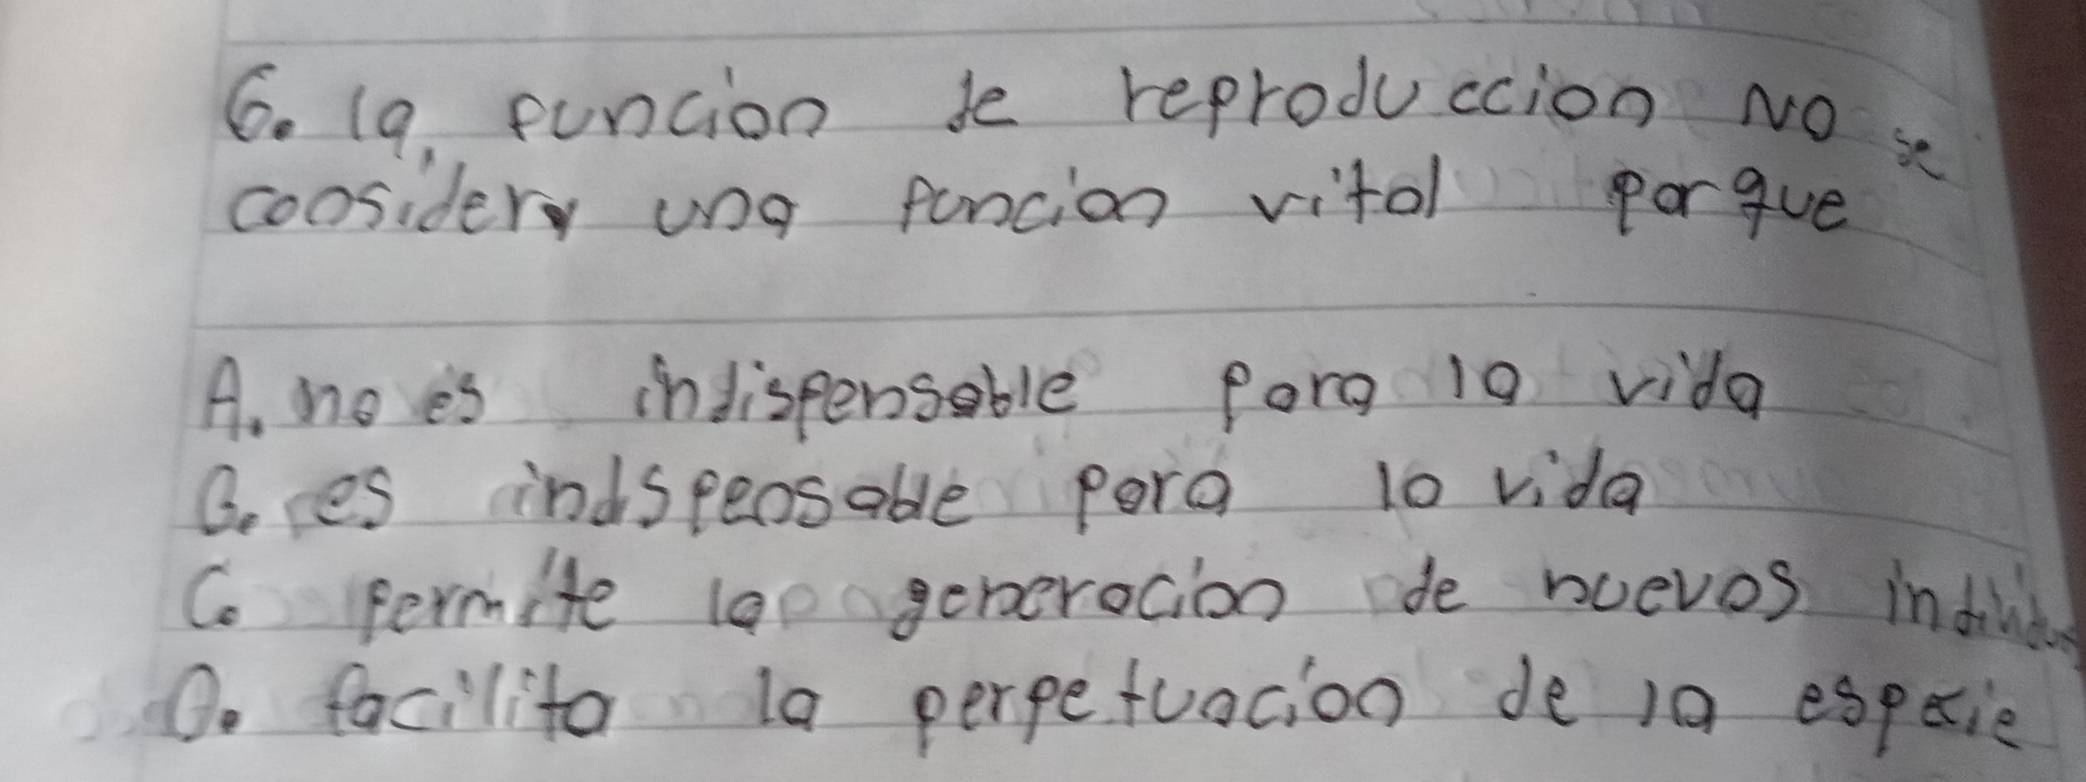 6. la funcion de reproduccion NO se
considera una funcion vital porque
A. no es indispensable para la vida
B. es indspensable para la vida
C. permite la generacion de nuevos individuos
D. facilita la perpetuacion de la especie